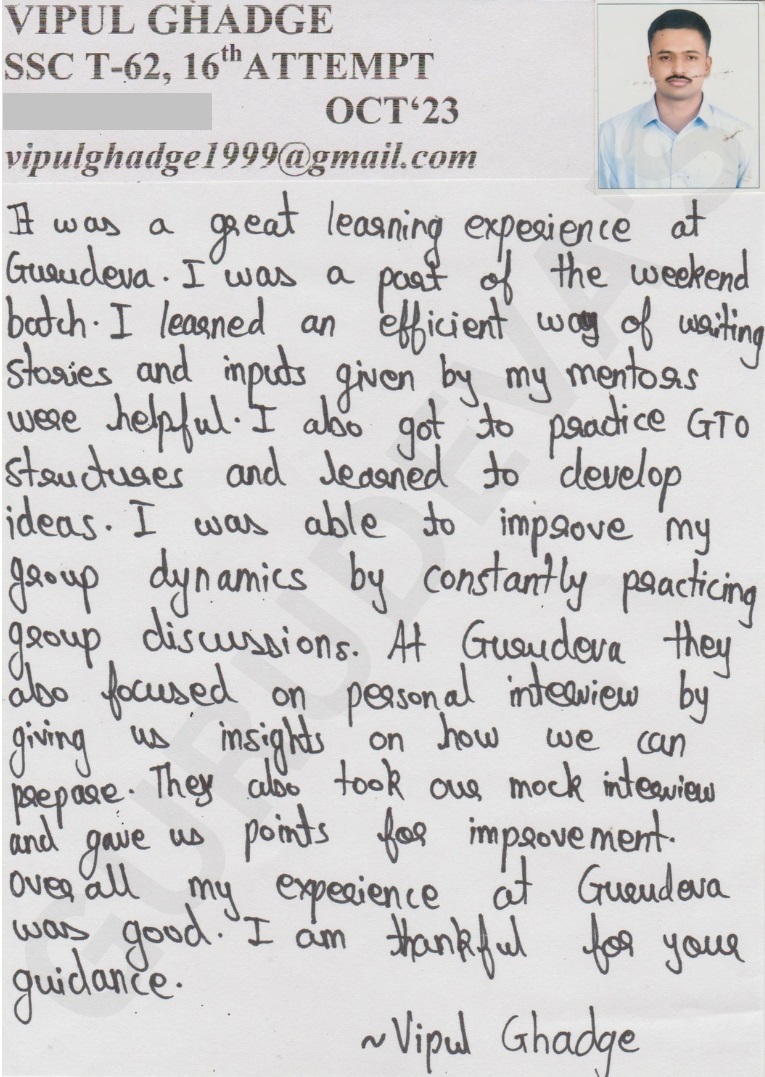 VIPUL GHADGE
SSC T-62, 16th ATTEMPT
OCT‘23
vipulghadge1999@gmail.com
It was a great learning experience at
Gurudeva. I was a part of the weekend
batch. I learned an efficient way of writing
stories and inputs given by my mentors
were helpful. I also got to practice GTO
structures and learned to develop
ideas. I was able to improve my
group dynamics by constantly practicing
group discussions. At Gurudeva they
also focused on personal interview by
giving us insights on how we can
prepare. They also took our mock interview
and gave us points for improvement.
Over all my experience at Gurudeva
was good. I am thankful for your
guidance.
~Vipul Ghadge
GURUDEVA'S